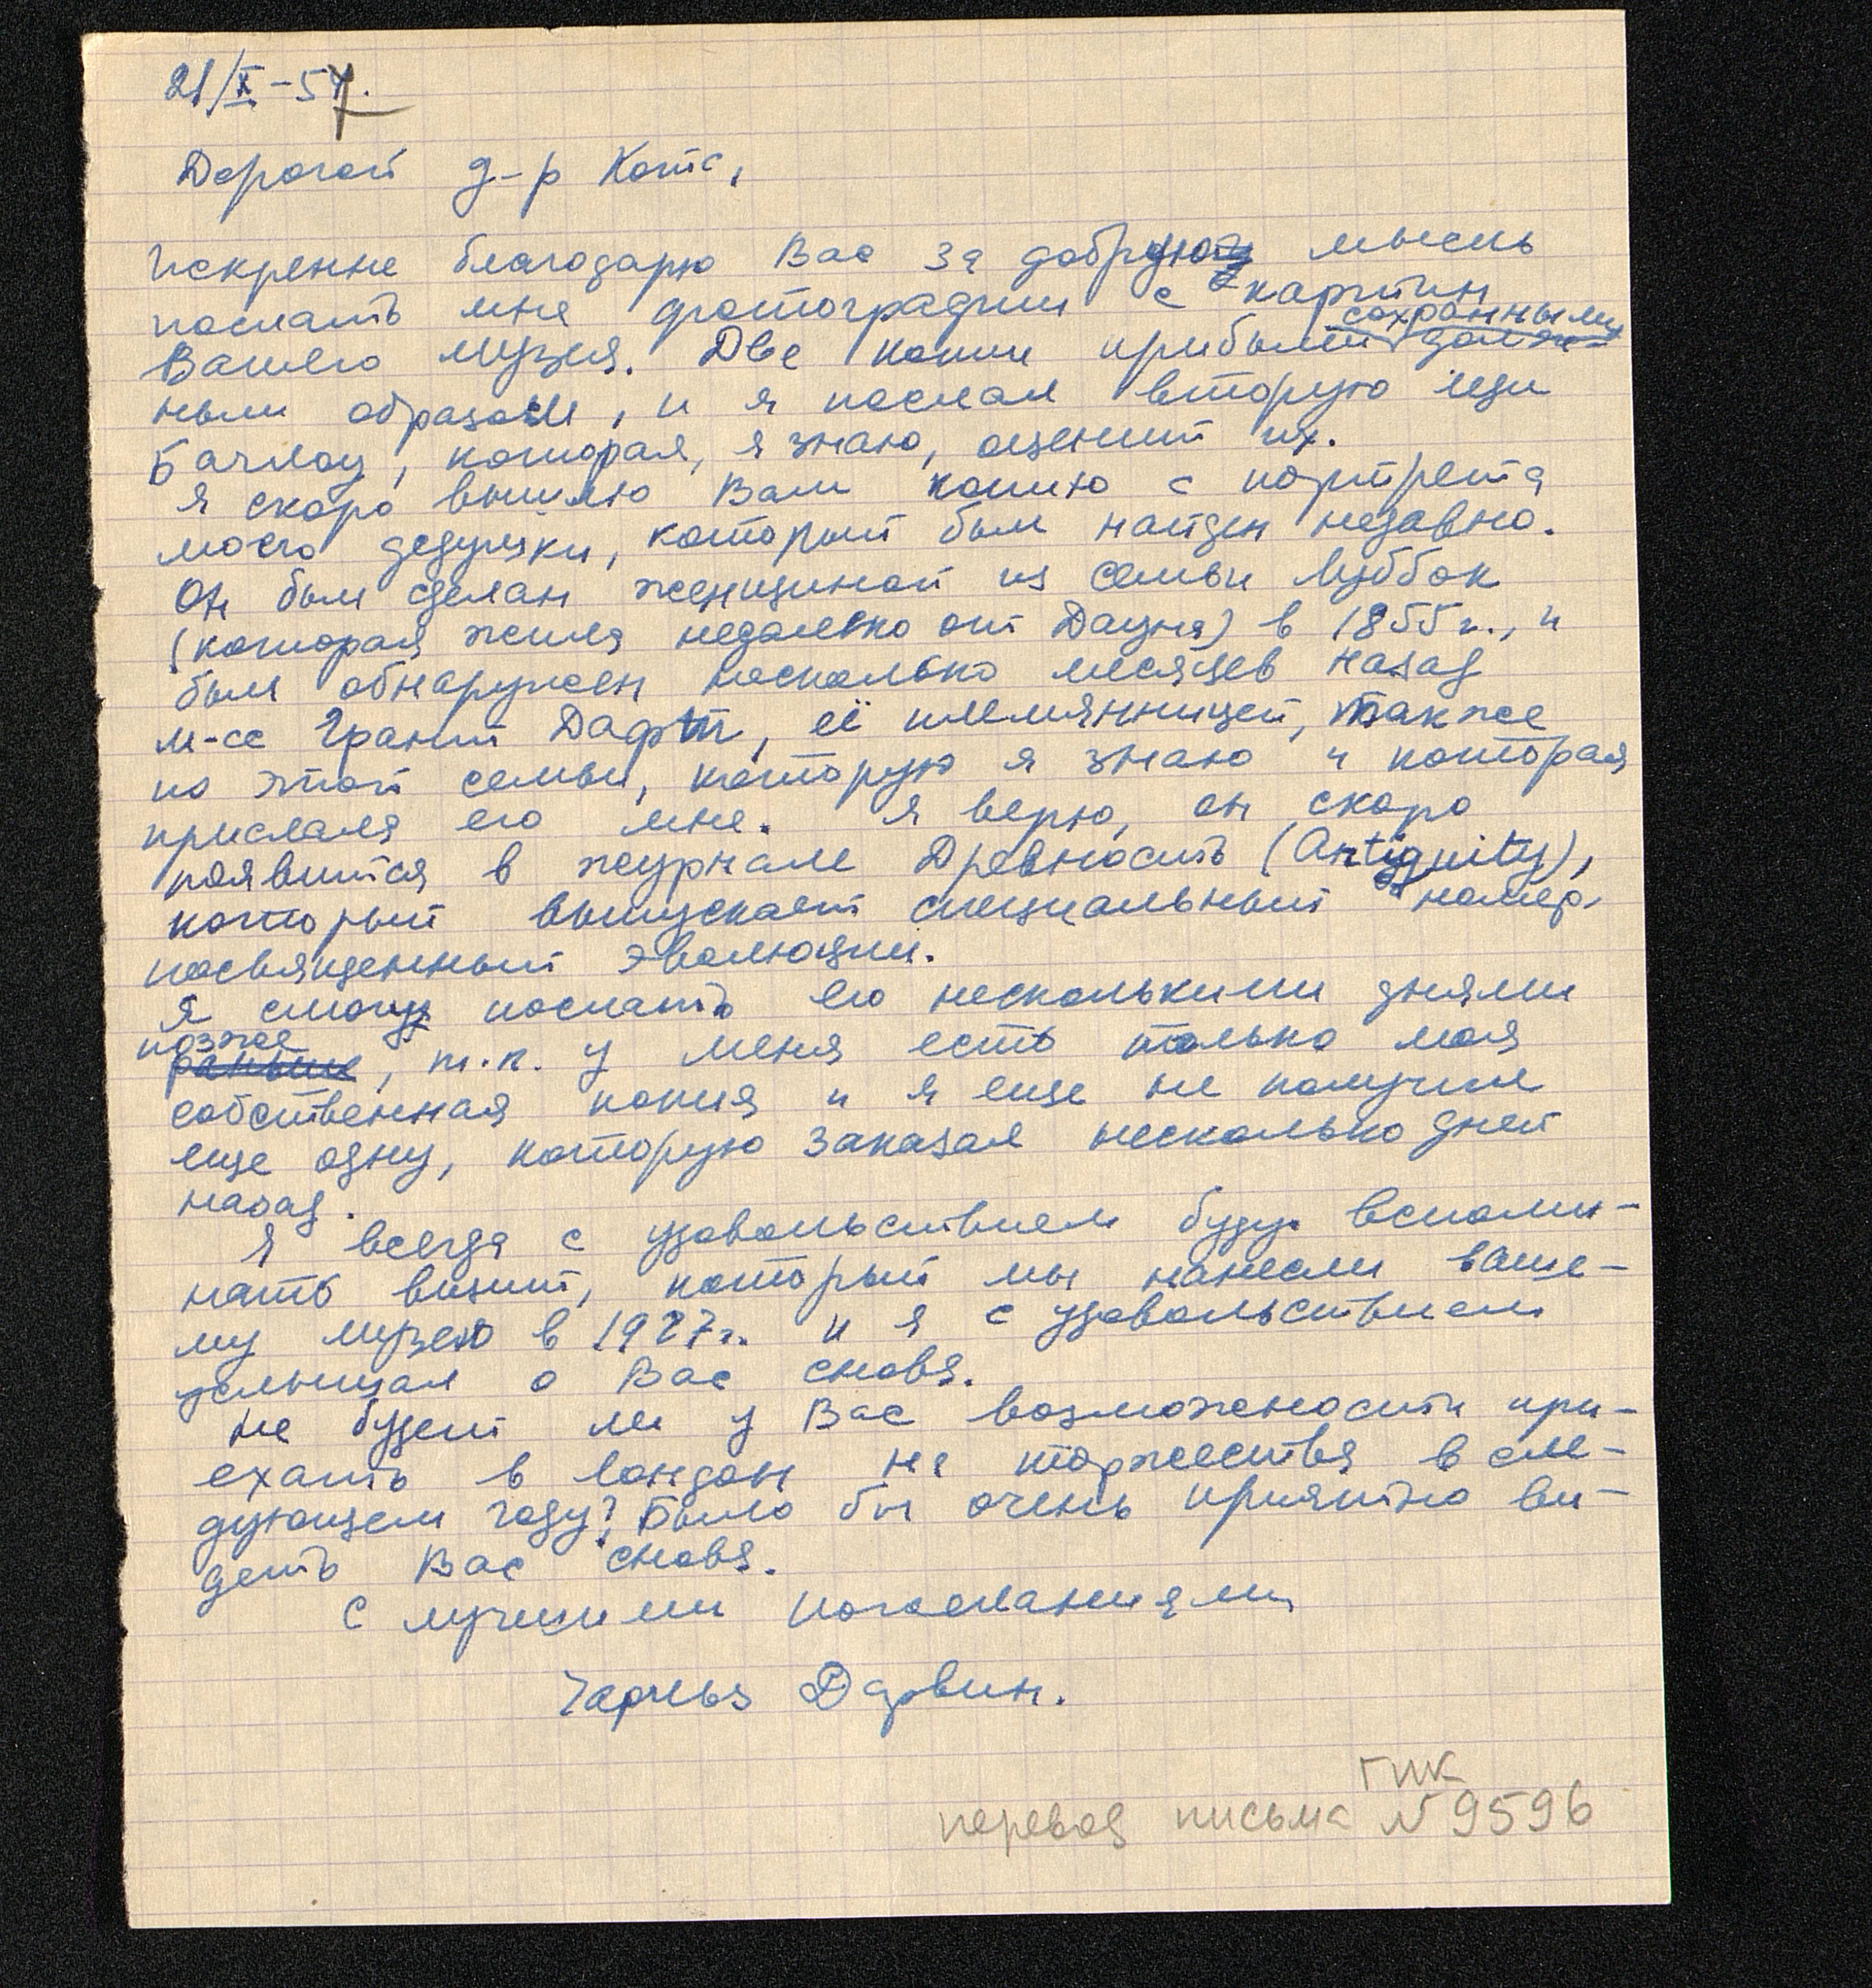 21/X-57.
Дорогой д-р Котс,
Искренне благодарю Вас за добрую мысль
послать мне фотографии с картин
Вашего музея. Две копии прибыли сохранными
ным образом, и я послал вторую леди
Барлоу, которая, я знаю, оценит их.
Я скоро вышлю Вам копию с портрета
моего дедушки, который был найден недавно.
Он был сделан женщиной из семьи Луббок
(которая жила недалеко от Дауна) в 1855 г., и
был обнаружен несколько месяцев назад
м-сс Грант Дафт, её племянницей, также
из этой семьи, которую я знаю и которая
прислала его мне. Я верю, он скоро
появится в журнале Древность (Antiquity),
который выпускает специальный номер,
посвященный эволюции.
Я смогу послать его несколькими днями
позже
раньше, т.к. у меня есть только моя
собственная копия и я еще не получил
еще одну, которую заказал несколько дней
назад.
Я всегда с удовольствием буду вспоми-
нать визит, который мы нанесли ваше-
му музею в 1927 г. и я с удовольствием
услышал о Вас снова.
Не будет ли у Вас возможности при-
ехать в Лондон на торжества в сле-
дующем году? Было бы очень приятно ви-
деть Вас снова.
С лучшими пожеланиями
Чарльз Дарвин.
ГИК
перевод письма N 9596